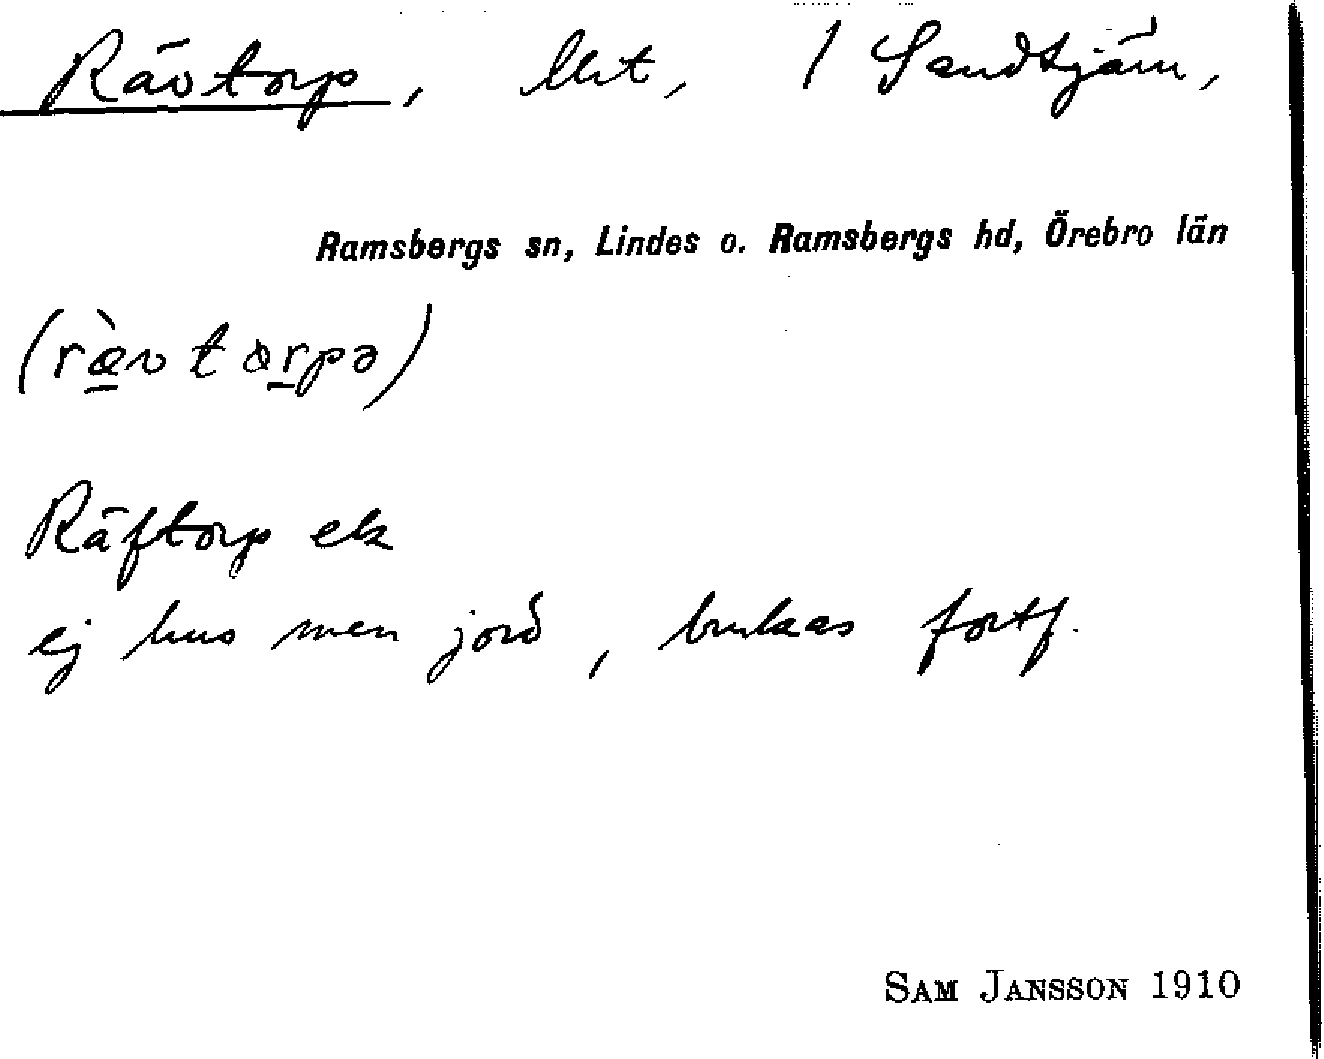 Rävtorp, lht, / Sandtjärn,
Ramsbergs sn, Lindes o. Ramsbergs hd, Örebro län
(ræ̀v tɑrpə)
Räftorp ek
ej hus men jord, brukas fortf.
SAM JANSSON 1910